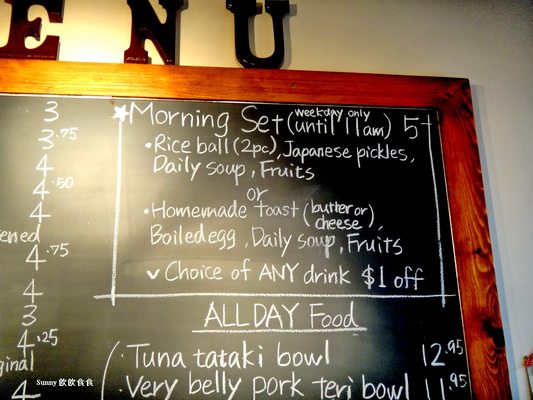 ENU
3
3.75
4
4.50
4
ened
4.75
4
3
4.25
ginal
4
★Morning Set (weekday only
until 11am) 5
• Rice ball (2pc), Japanese pickles,
Daily soup, Fruits
or
• Homemade toast (butter or
cheese),
Boiled egg, Daily soup, Fruits
✓ Choice of ANY drink $1 off
ALL DAY Food
• Tuna tataki bowl 12.95
• Very belly pork teri bowl 11.95
Sunny 飲飲食食